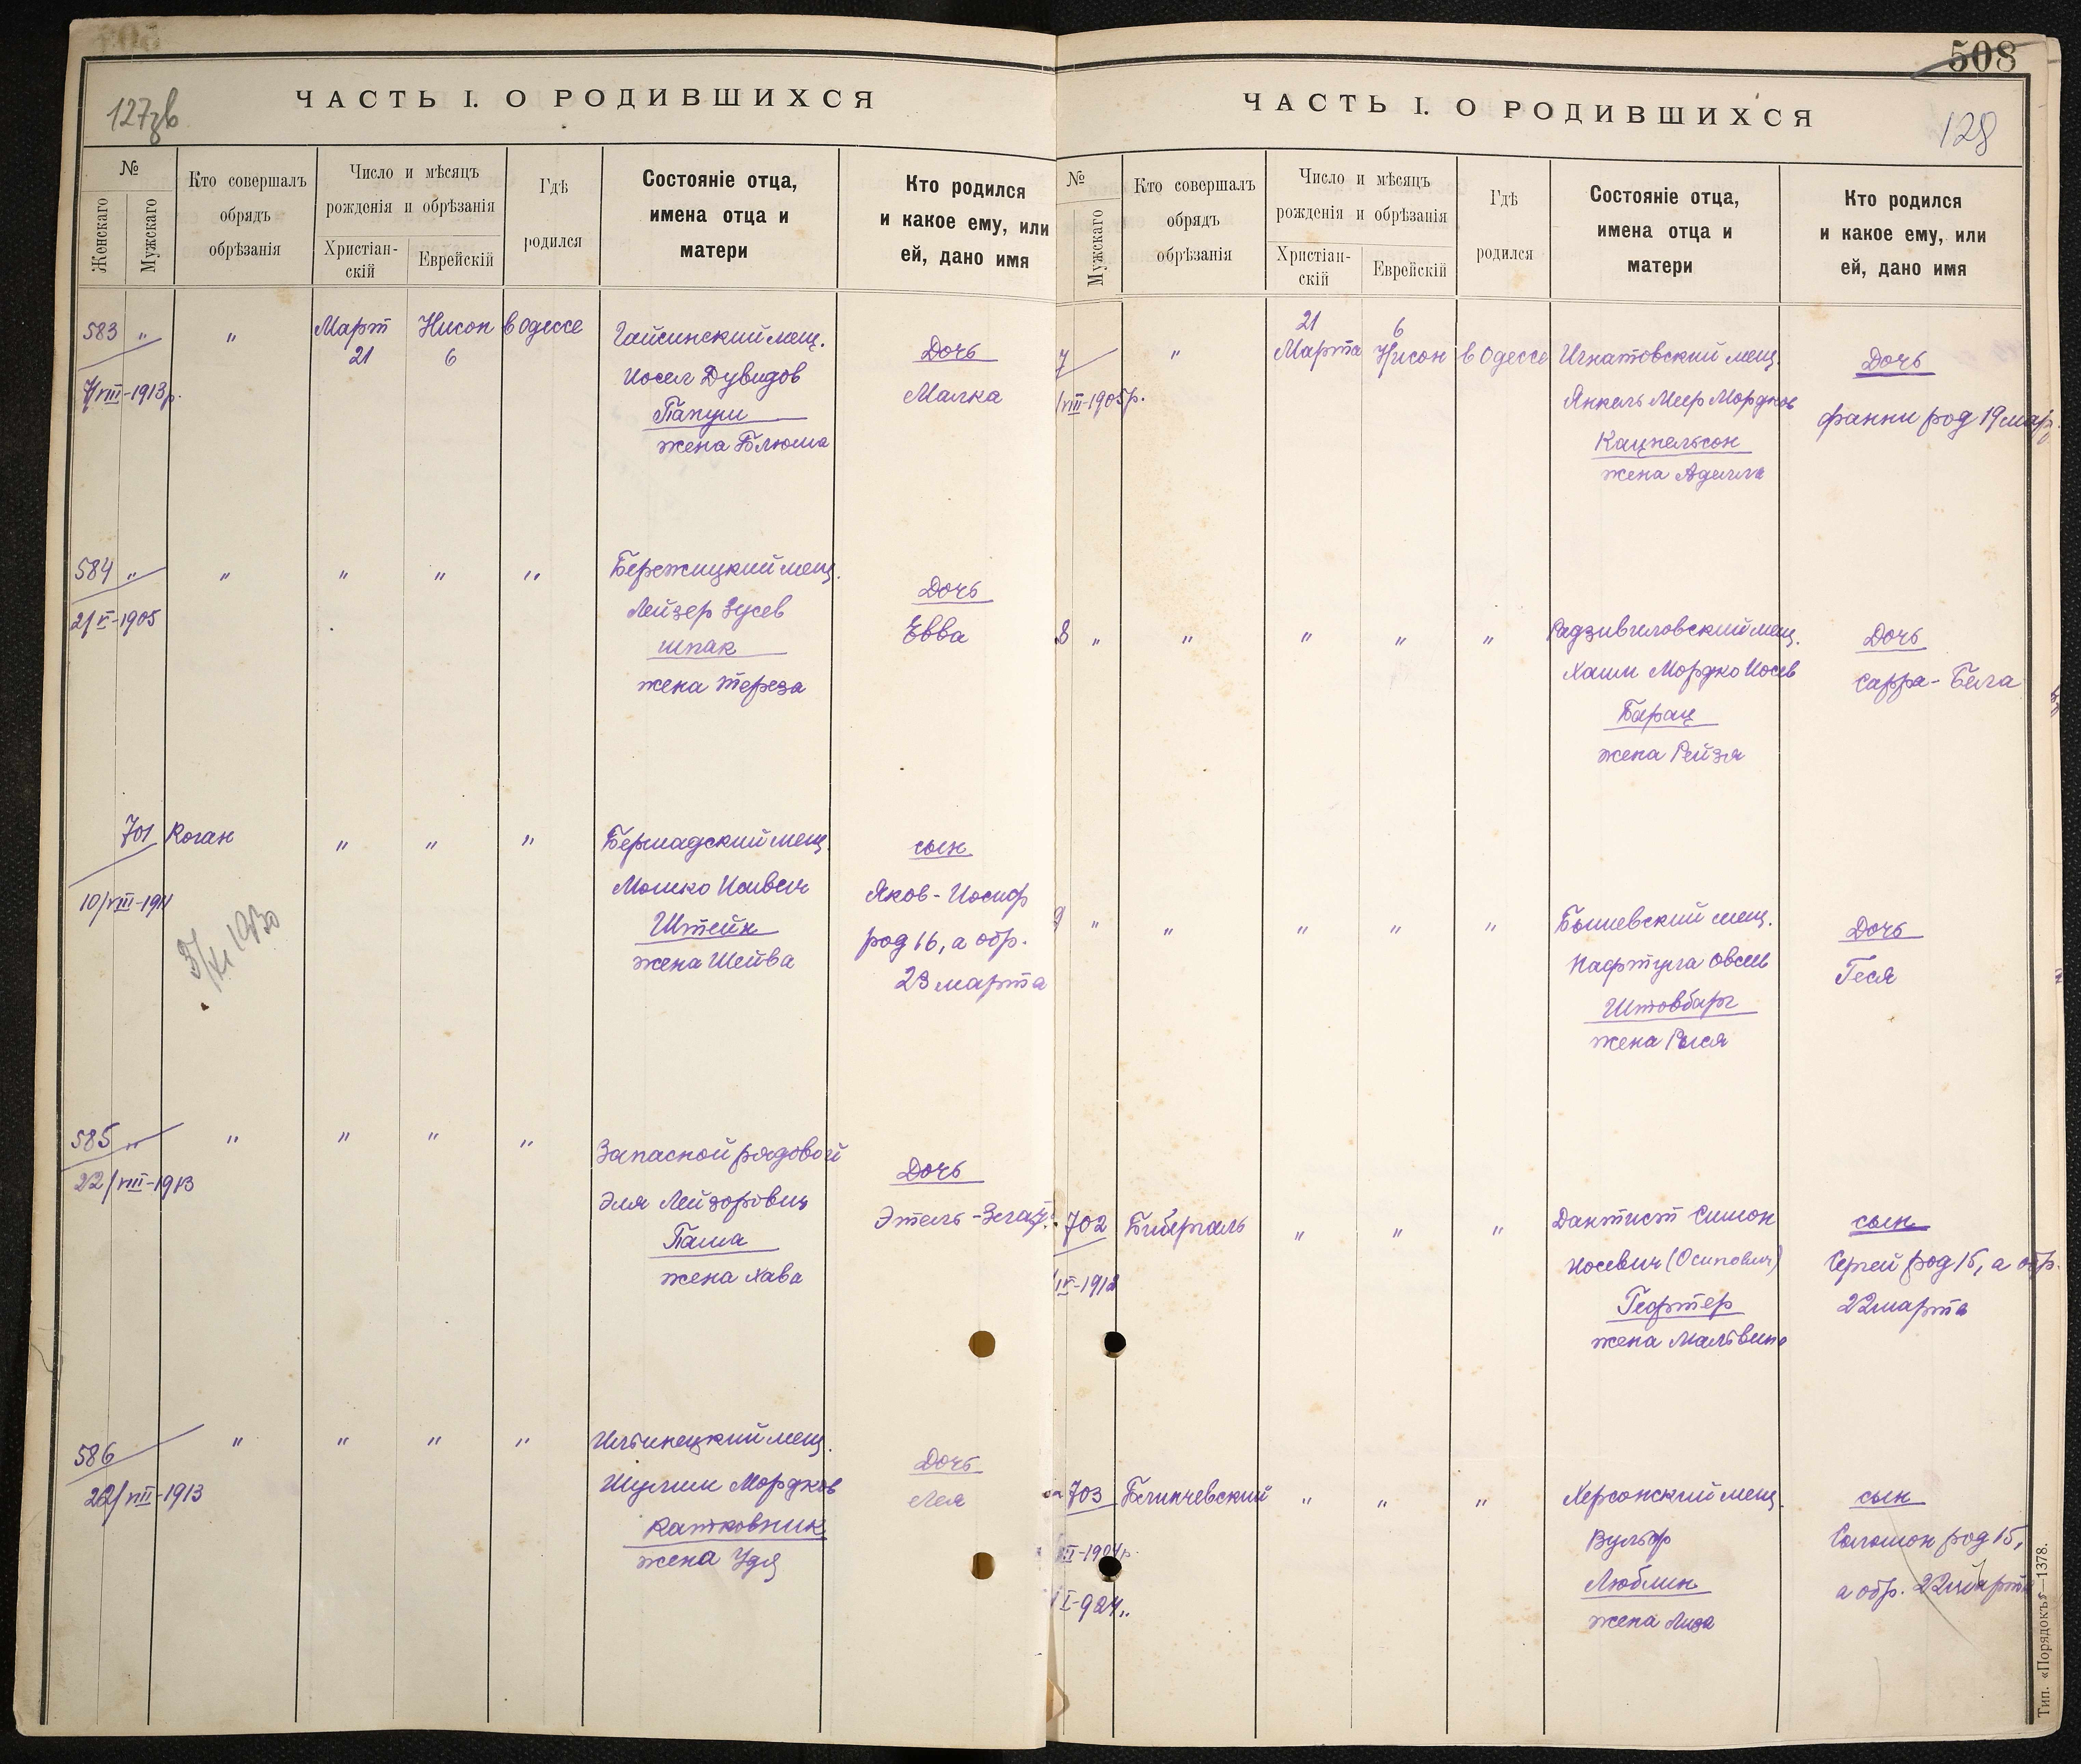 127зв
ЧАСТЬ I. О РОДИВШИХСЯ
№
Женскаго
Мужскаго
Кто совершалъ
обрядъ
обрѣзанія
Число и мѣсяцъ
рожденія и обрѣзанія
Христіан-
скій
Еврейскій
Гдѣ
родился
Состояніе отца,
имена отца и
матери
Кто родился
и какое ему, или
ей, дано имя
583 " " Март Нисон в Одессе Гайсинский мещ. Дочь
21 6
Иосел Дувидов
Малка
VIII-1913р.
Папуш
жена Блюма
584 " " " " " Бережицкий мещ. Дочь
2/V-1905 Лейзер Зусев Евва
Шпак
жена Тереза
701 Коган " " " Бершадский мещ. сын
10/VIII-1911 Мошко Яков-Иосиф
Штейн род 16, а обр.
жена Шейва 23 марта
585 " " " " " Запасной рядовой Дочь
22/VIII-1913 Эля Лейзорович
Этель-
Паша
жена Хава
586 " " " " Ильинецкий мещ. Дочь
VIII-1913 Шулим Мордков Лея
Катковник
жена Удя
508
ЧАСТЬ I. О РОДИВШИХСЯ
128
№
Мужскаго
Кто совершалъ
обрядъ
обрѣзанія
Число и мѣсяцъ
рожденія и обрѣзанія
Христіан-
скій
Еврейскій
Гдѣ
родился
Состояніе отца,
имена отца и
матери
Кто родился
и какое ему, или
ей, дано имя
21 6
7 " Марта Нисон в Одессе Игнатовский мещ. Дочь
/VIII-1905р. Янкель Меер Мордков Фанни род 19 мар.
Кацнельсон
жена Аделла
8 " " " " " Радзивиловский мещ. Дочь
Хаим Мордко Иосев Сарра-Бела
Барац
жена Рейзя
9 " " " " " Бышевский мещ. Дочь
Нафтула Овсев Геся
Штовбарг
жена Рися
702 Бибергаль " " " Дантист Симон сын
Иосевич (Осипович) Сергей род 15, а обр.
IV-1912 Гефтер 22 марта
жена Мальвина
703 Блинчевский " " " Херсонский мещ. сын
Вульф Соломон род 15,
Люблин а обр. 22 марта
I-924" жена Лиза
Тип. «Порядокъ»—1378.